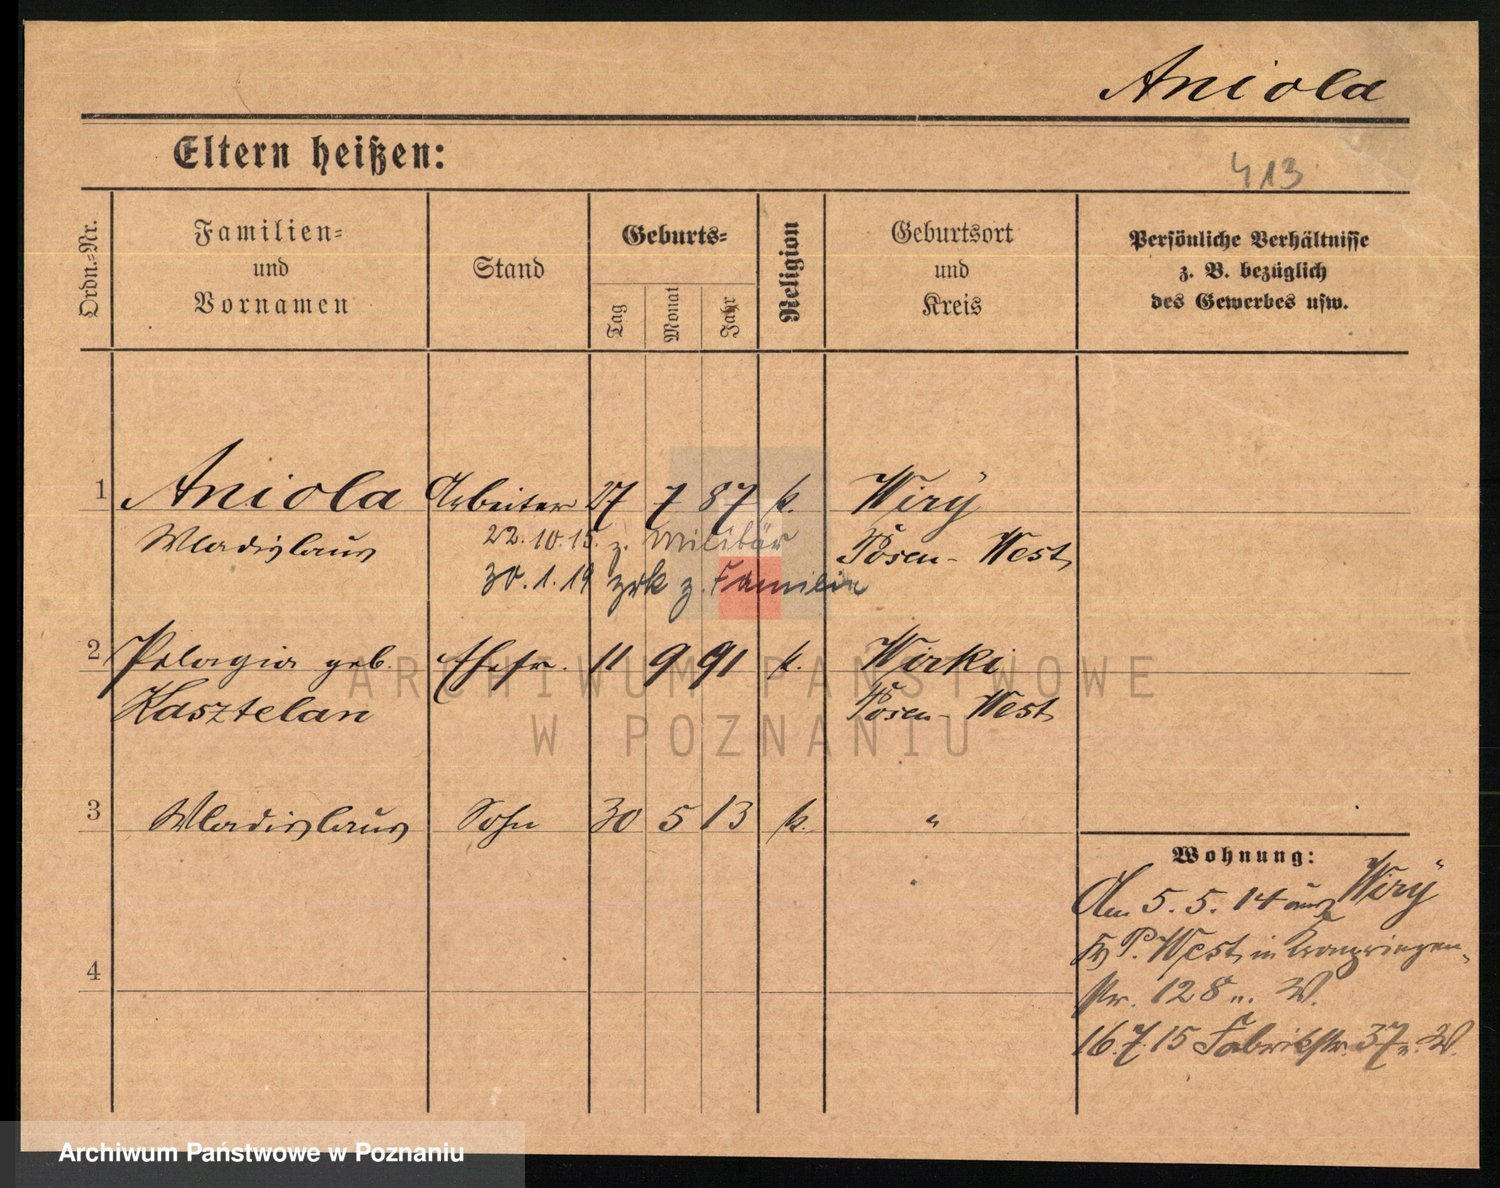 Aniola
Eltern heißen:
413
Ordn.=Nr.
Familien=
und
Vornamen
Stand
Geburts=
Tag
Monat
Jahr
Religion
Geburtsort
und
Kreis
Persönliche Verhältnisse
z. B. bezüglich
des Gewerbes usw.
1 Aniola Arbeiter 27 7 87 k. Wirÿ
Wladislaus Posen-West
22.10.15. z. Militär
30.1.19 zrk z. Familie
2 Pelagia geb. Ehefr. 11 9 91 k. Wirki
Kasztelan Posen-West
3 Wladislaus Sohn 30 5 13 k. "
4
Wohnung:
Am 5.5.14 aus Wirÿ
P. West in Kronprinzen-
str. 128 W.
16.7.15 Fabrikstr. 37 W.
ARCHIWUM PAŃSTWOWE
W POZNANIU
Archiwum Państwowe w Poznaniu